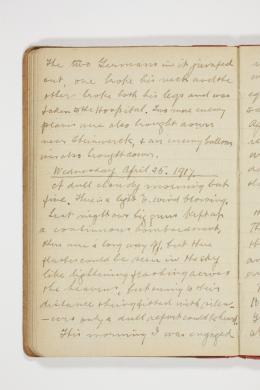 The two Germans in it jumped
out, one broke his neck and the
other broke both his legs and was
taken to the Hospital. Two more enemy
planes were also brought down
near Steinwerck, & an enemy balloon
was also brought down.
Wednesday April 25. 1917.
A dull cloudy morning but
fine. There is a light E. wind blowing.
Last night our big guns kept up
a continuous bombardment,
they are a long way off, but their
flashes could be seen in the sky
like lightening flashing across
the heavens, but owing to their
distance & being fitted with silen-
-cers only a dull report could be heard.
This morning I was engaged